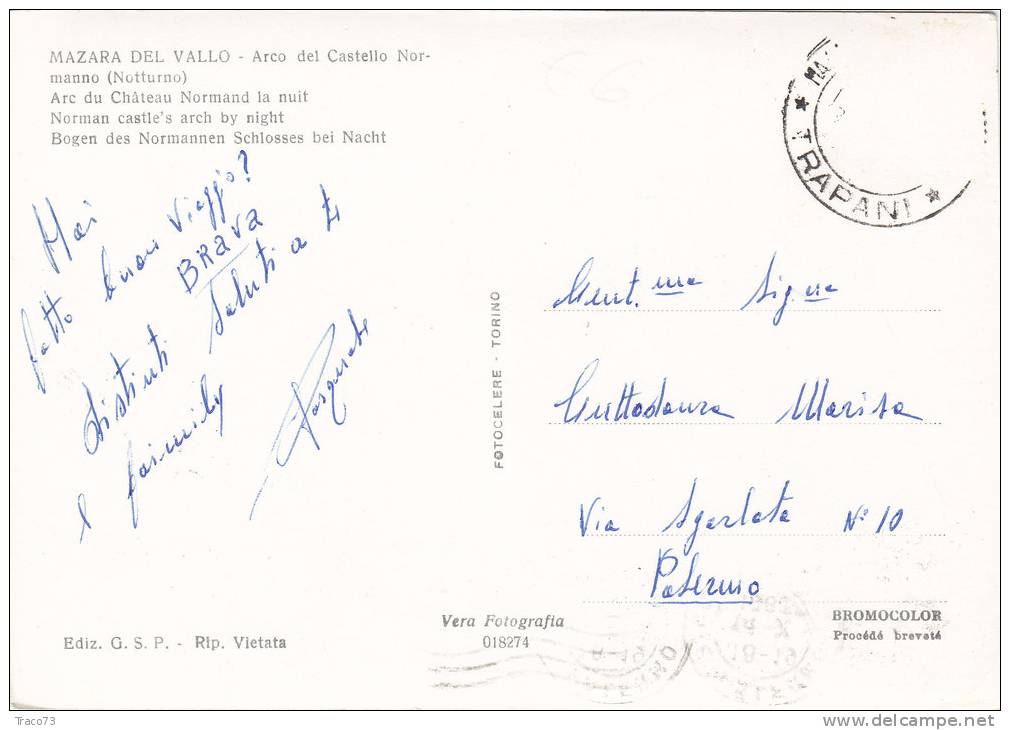 MAZARA DEL VALLO - Arco del Castello Nor-
manno (Notturno)
Arc du Château Normand la nuit
Norman castle's arch by night
Bogen des Normannen Schlosses bei Nacht
Hai
fatto buon viaggio?
BRAVA
Distinti Saluti a te
e faimily
Pasquale
TRAPANI
FOTOCELERE - TORINO
Gent.ma Sig.na
Guttadauro Marisa
Via Sgarlata N° 10
Palermo
Vera Fotografia
018274
BROMOCOLOR
Procédé breveté
Ediz. G. S. P. - Rip. Vietata
18-19
Traco73
delcampe.net